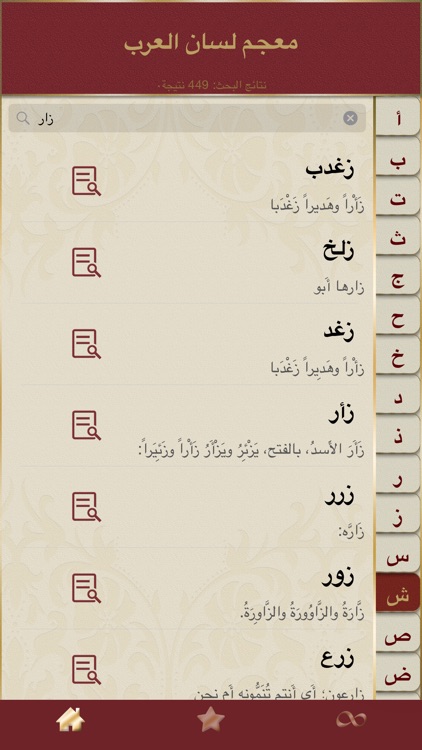 معجم لسان العرب
نتائج البحث: 449 نتيجة.
زار
زغدب
زَأْراً وهَديراً زَغْدَبا
زلخ
زارها أَبو
زغد
زأْراً وهَدِيراً زَغْدَبا
زأر
زَأَرَ الأَسدُ، بالفتح، يَزْئِرُ ويَزْأَرُ زَأْراً وزَئِيَراً:
زرر
زَارَّه:
زور
زَّارَةُ والزَّاوُورَةُ والزَّاوِرَةُ.
زرع
زارعون؛ أَي أَنتم تُنَمُّونه أَم نحن
أ
ب
ت
ث
ج
ح
خ
د
ذ
ر
ز
س
ش
ص
ض